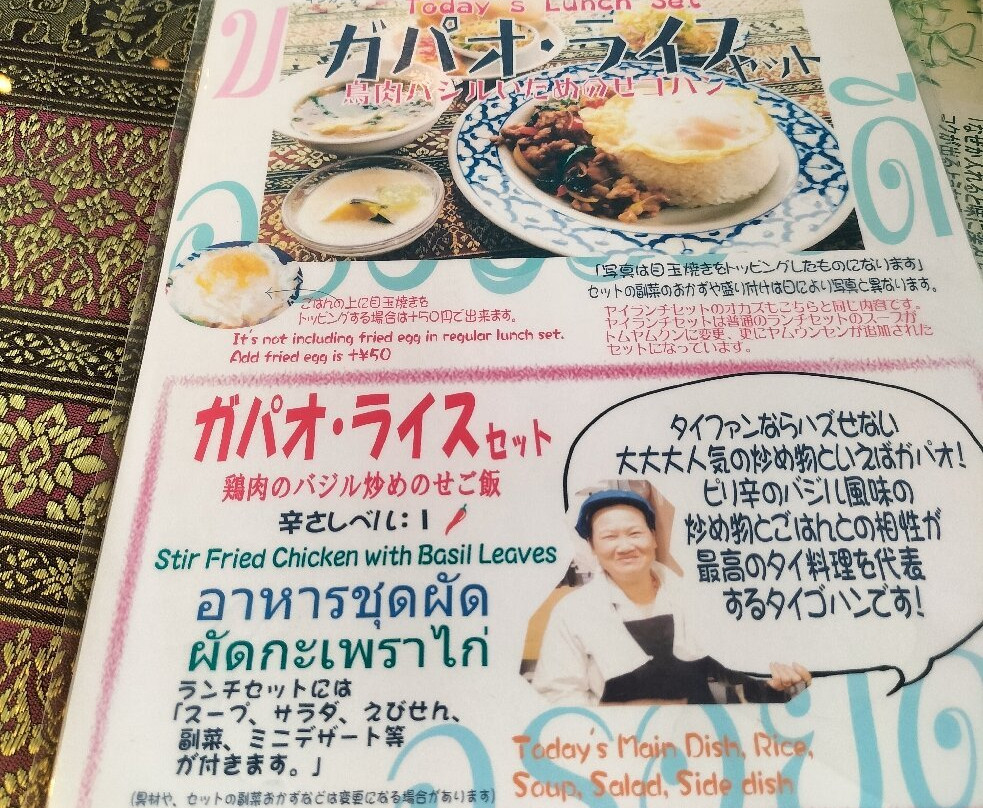 Today's Lunch Set
ガパオ・ライスセット
鳥肉バジルいためのせゴハン
ごはんの上に目玉焼きを
トッピングする場合は+50円で出来ます。
It's not including fried egg in regular lunch set.
Add fried egg is +¥50
「写真は目玉焼きをトッピングしたものになります」
セットの副菜のおかずや盛り付けは日により写真と異なります。
ヤイランチセットのオカズもこちらと同じ内容です。
ヤイランチセットは普通のランチセットのスープが
トムヤムクンに変更、更にヤムウンセンが追加された
セットになっています。
ガパオ・ライスセット
鶏肉のバジル炒めのせご飯
辛さレベル:1
Stir Fried Chicken with Basil Leaves
อาหารชุดผัด
ผัดกะเพราไก่
ランチセットには
「スープ、サラダ、えびせん、
副菜、ミニデザート等
が付きます。」
(具材や、セットの副菜おかずなどは変更になる場合があります)
タイファンならハズせない
大大大人気の炒め物といえばガパオ!
ピリ辛のバジル風味の
炒め物とごはんとの相性が
最高のタイ料理を代表
するタイゴハンです!
Today's Main Dish, Rice,
Soup, Salad, Side dish